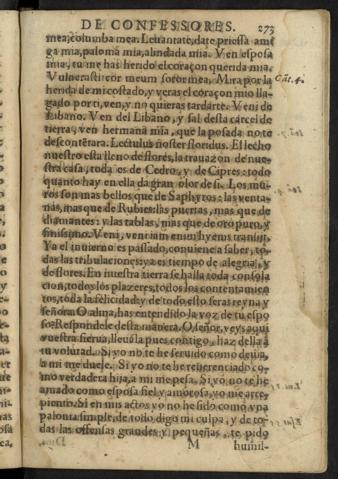 DE CONFESSORES. 273
mea, columba mea. Leuantate, date priessa ami
ga mia, paloma mia, alindada mia. Ven esposa
mia, tu me has herido el coraçon querida mia.
Vulnerasti cor meum soror mea. Mira por la
herida de mi costado, y veras el coraçon mio lla-
gado por ti, ven, y no quieras tardarte. Veni de
Libano. Ven del Libano, y sal desta carcel de
tierra, ven hermana mia, que la posada no te
descontẽtara. Lectulus noster floridus. El lecho
nuestro esta lleno de flores, la trauazon de nue-
stra casa, toda es de Cedro, y de Cipres: todo
quanto hay en ella da gran olor de si. Los mu-
ros son mas bellos que de Saphyros: las venta-
nas, mas que de Rubies: las puertas, mas que de
diamantes: y las tablas, mas que de oro puro, y
finissimo. Veni, veni iam enim hyems transijt.
Ya el inuierno es passado, conuiene a saber, to-
das las tribulaciones: ya es tiempo de alegria, y
de flores. En nuestra tierra se halla toda consola
cion, todos los plazeres, todos los contentamien
tos, toda la felicidad, y de todo esto seras reyna y
señora. O alma, has entendido la voz de tu espo
so? Respondele desta manera. O señor, veys aqui
vuestra sierua, lleuos la pues contigo, haz della a
tu voluntad. Si yo no te he seruido como deuia,
a mi me duele. Si yo no te he reuerenciado co-
mo verdadera hija, a mi me pesa. Si yo no te he
amado como esposa fiel y amorosa, yo me arre-
piento. Si en mis actos yo no he sido como vna
paloma simple, de todo digo mi culpa, y de to-
das las offensas grandes y pequeñas, te pido
M humil-
Cãt. 4.